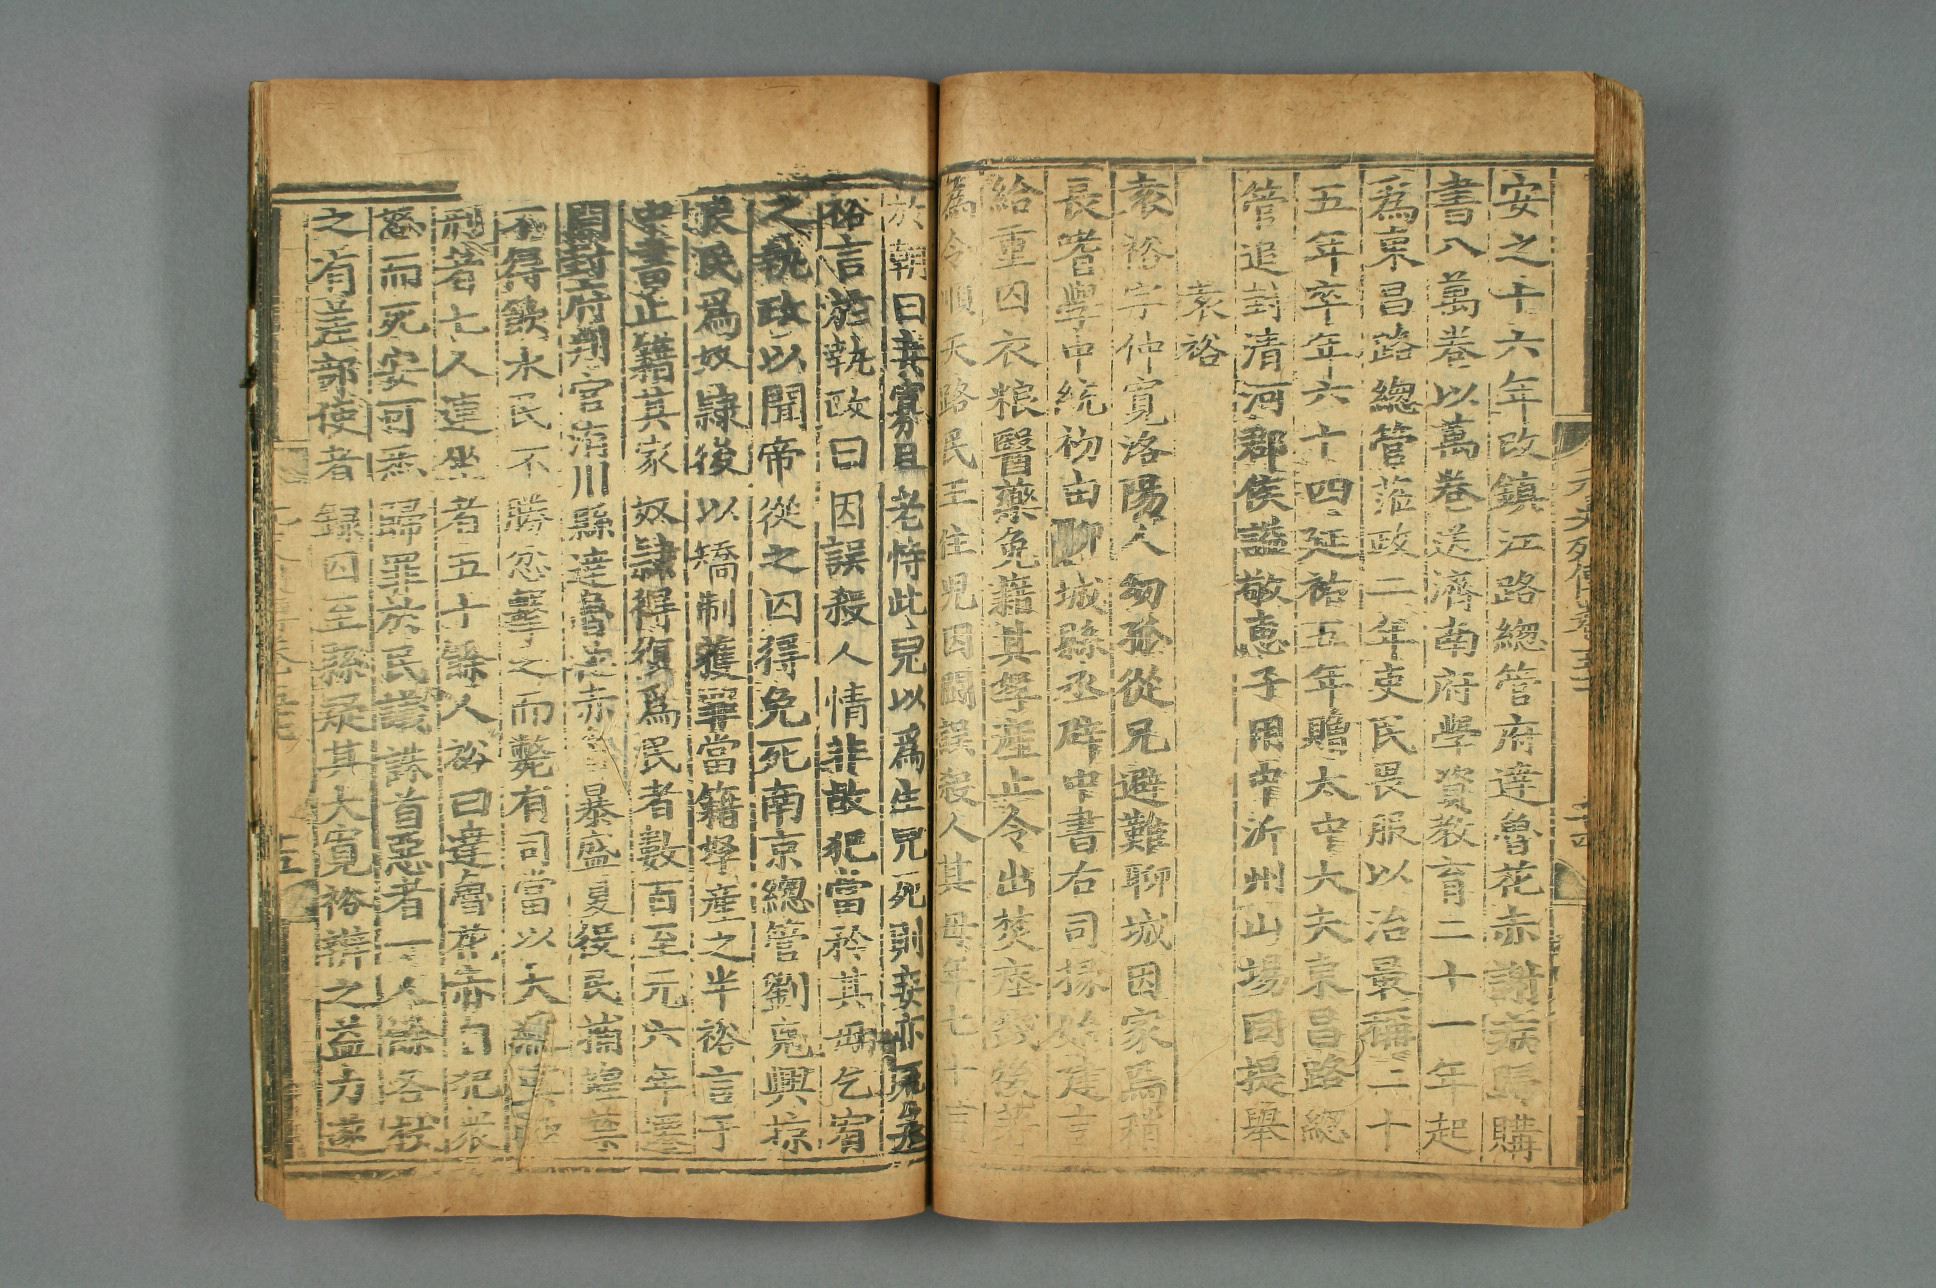 安之十六年改鎮江路總管府達魯花赤謝病歸購
書八萬卷以萬卷送濟南府學資教育二十一年起
爲東昌路總管蒞政二年吏民畏服以治最稱二十
五年卒年六十四延祐五年贈太中大夫東昌路總
管追封清河郡侯諡敬惠子用中沂州山場同提舉
袁裕
袁裕字仲寬洛陽人幼孤從兄避難聊城因家焉稍
長嗜學中統初由聊城縣丞辟中書右司掾始建言
給重囚衣糧醫藥免籍其孥產止令出焚瘞錢後著
爲令順天路民王住兒因鬭誤殺人其母年七十言
於朝曰妾寡且老恃此兒以爲生兒死則妾亦死矣
裕言於執政曰因誤殺人情非故犯當矜其母乞宥
之執政以聞帝從之囚得免死南京總管劉克興掠
良民爲奴隷後以矯制獲罪當籍孥產之半裕言于
中書止籍其家奴隷得復爲民者數百至元六年遷
開封府判官洧川縣達魯花赤貪暴盛夏役民捕蝗禁
不得飲水民不勝忿擊之而斃有司當以大逆置極
刑者七人連坐者五十餘人裕曰達魯花赤自犯衆
怒而死安可悉歸罪於民議誅首惡者一人餘各杖
之有差部使者錄囚至縣疑其太寬裕辨之益力遂